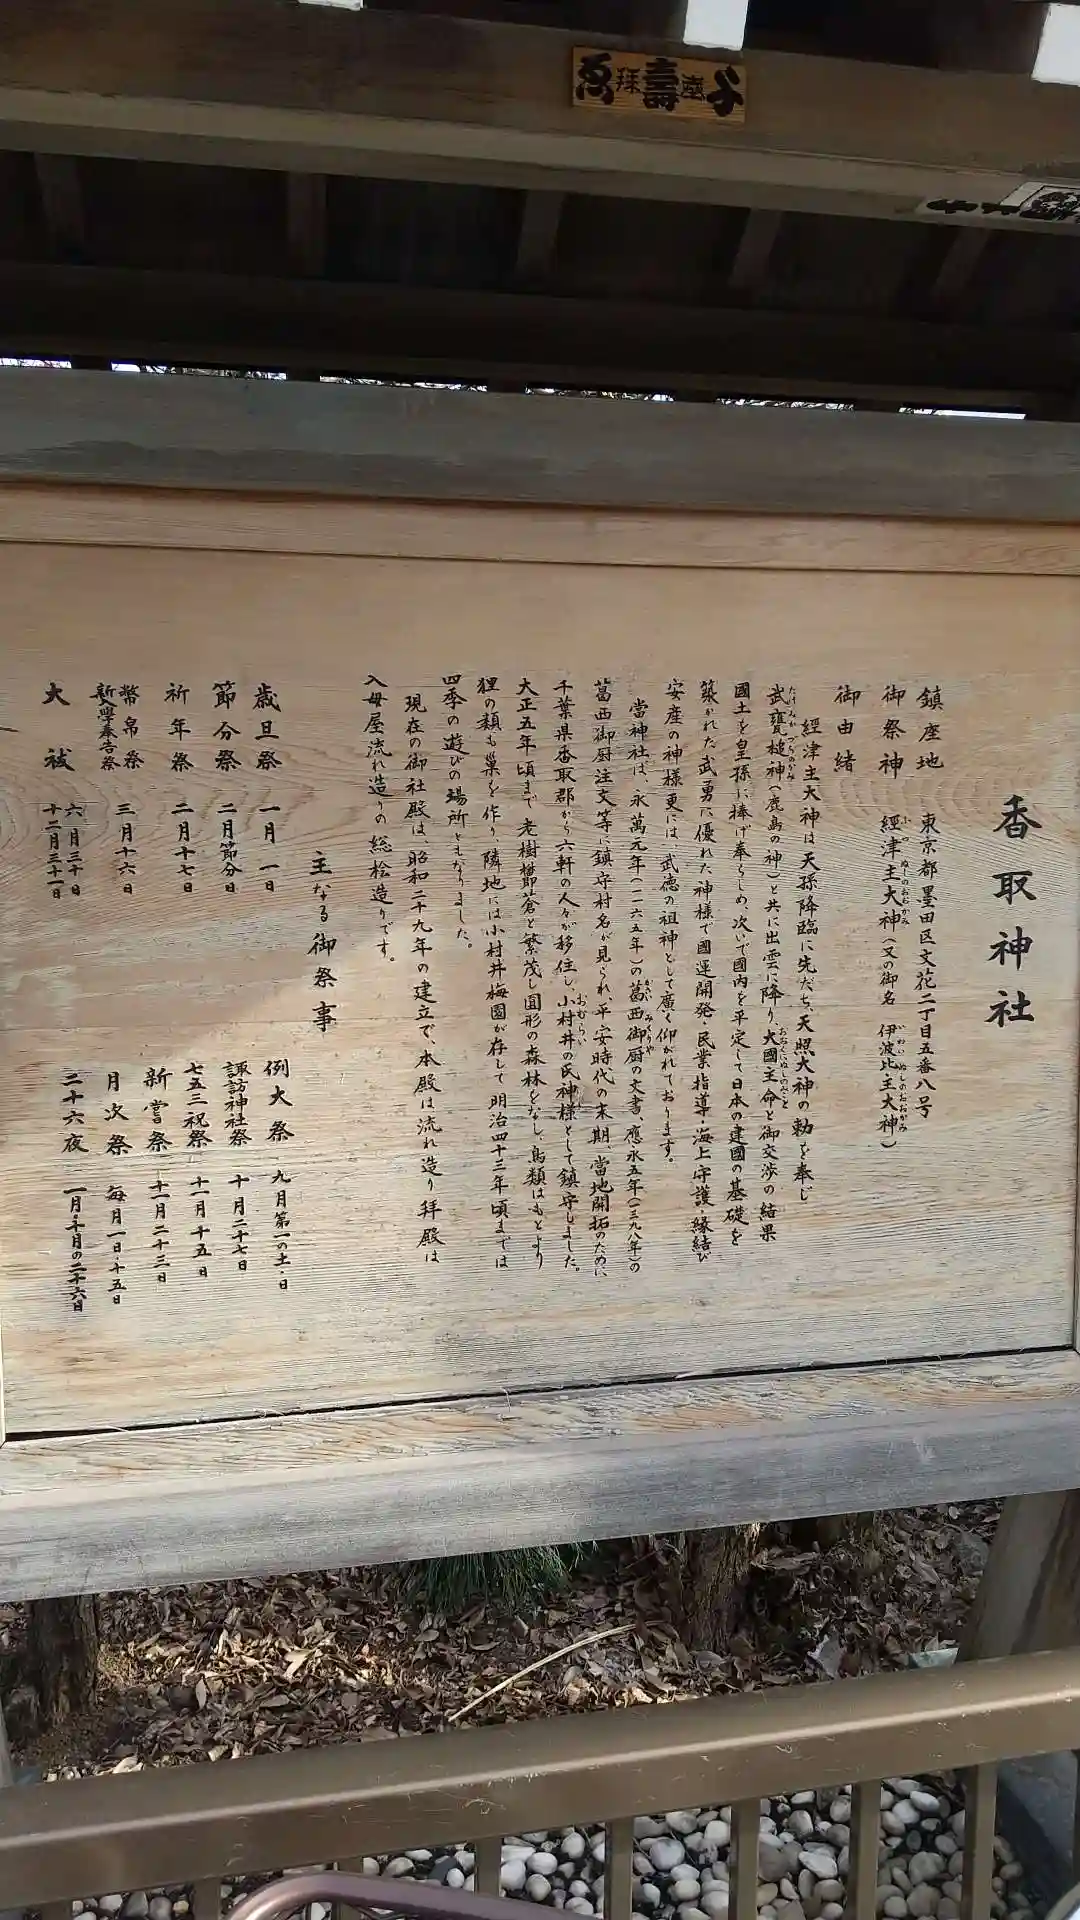 香取神社
鎮座地 東京都墨田区文花二丁目五番八号
御祭神 経津主大神(又の御名 伊波比主大神)
ふつぬしのおおかみ いわいぬしのおおがみ
御由緒
経津主大神は天孫降臨に先だち、天照大神の勅を奉じ
武甕槌神(鹿島の神)と共に出雲に降り、大國主命と御交渉の結果
たけみかづちのかみ おおくにぬしのみこと
國土を皇孫に捧げ奉らしめ、次いで國内を平定して日本の建國の基礎を
築かれた武勇に優れた神様で國運開発・民業指導・海上守護・縁結び
安産の神様更には 武徳の祖神として廣く仰がれております。
當神社は、永萬元年(一一六五年)の葛西御厨の文書、應永五年(一三九八年)の
かさい みくりや
葛西御厨注文等に鎮守村名が見られ、平安時代の末期、當地開拓のために
千葉県香取郡から六軒の人々が移住し、小村井の氏神様として鎮守しました。
おむらい
大正五年頃まで老樹欝蒼と繁茂し圓形の森林をなし、鳥類はもとより
狸の類も巣を作り隣地には小村井梅園が存して明治四十三年頃までは
四季の遊びの場所ともなりました。
現在の御社殿は、昭和二十九年の建立で、本殿は流れ造り拝殿は
入母屋流れ造りの総桧造りです。
主なる御祭事
歳旦祭 一月一日
節分祭 二月節分日
祈年祭 二月十七日
幣帛祭
新入學奉告祭 三月十六日
大祓 六月三十日
十二月三十一日
例大祭 九月第一の土・日
諏訪神社祭 十月二十七日
七五三祝祭 十一月十五日
新嘗祭 十一月二十三日
月次祭 毎月一日・十五日
二十六夜 一月・十月の二十六日